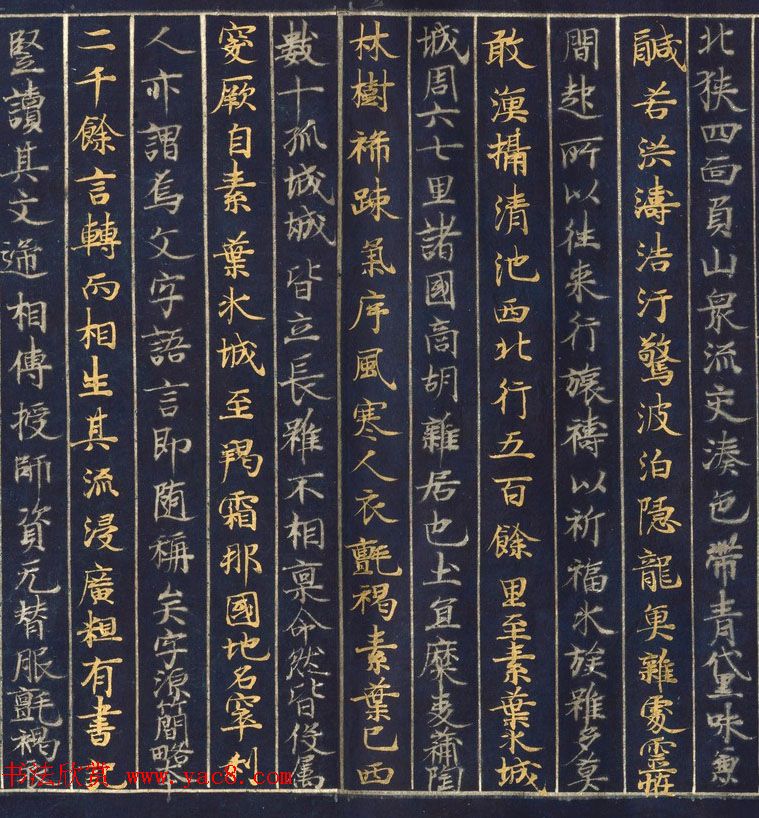 北狹四面負山衆流交湊色帶青黑味兼
鹹苦洪濤浩汗驚波泊隱龍魚雜處靈恠
間起所以往來行旅禱以祈福水族雖多莫
敢漁捕清池西北行五百餘里至素葉水城
城周六七里諸國商胡雜居也土宜糜麦蒲陶
林樹稀踈氣序風寒人衣氎褐素葉已西
數十孤城城皆立長雖不相稟命然皆伇屬
突厥自素葉水城至羯霜那國地名窣利
人亦謂焉文字語言即随稱矣字源簡略
二千餘言轉而相生其流浸廣粗有書記
竪讀其文遞相傳授師資无替服氎褐
书法欣赏 www.yac8.com